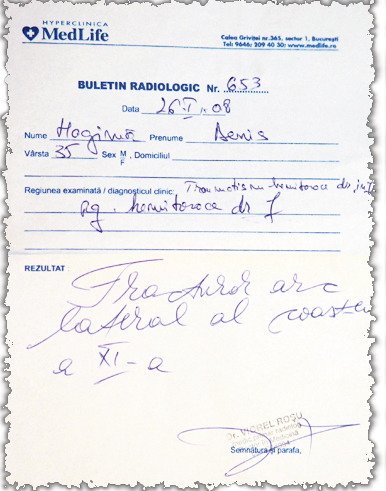 HYPERCLINICA
MedLife
Calea Griviței nr.365, sector 1, București
Tel: 9646; 209 40 30; www.medlife.ro
BULETIN RADIOLOGIC Nr. 653
Data 26 I 08
Nume Prenume Denis
Vârsta 35 Sex M F, Domiciliul
Regiunea examinată / diagnosticul clinic: Traumatism hemitorace dr,
Rg. hemitorace dr f
REZULTAT
Fractură arc
lateral al coastei
a XI-a
Dr. VIOREL ROȘU
Semnătura și parafa,